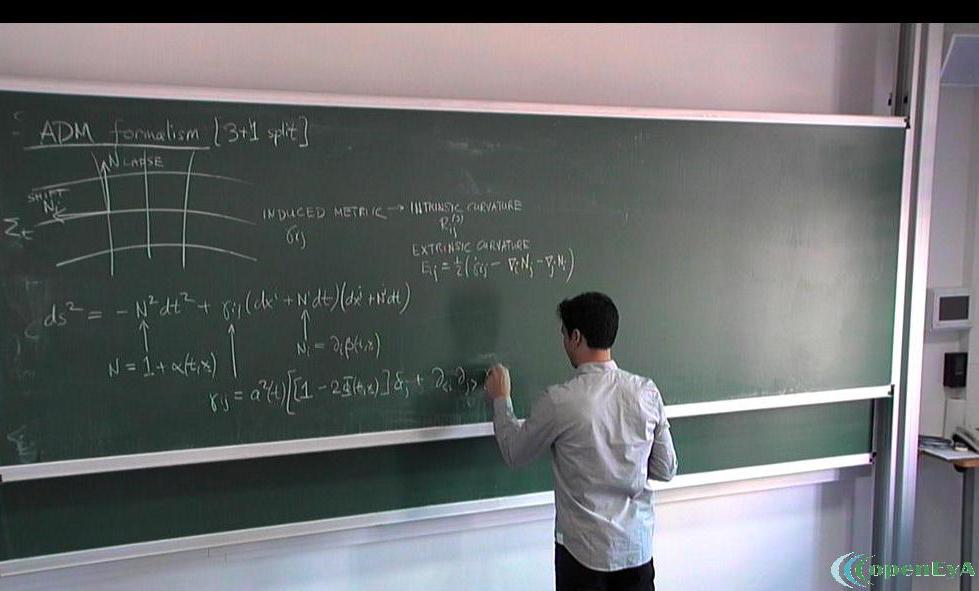 ADM formalism [3+1 split]
N LAPSE
SHIFT
Nᵢ
Σt
INDUCED METRIC → INTRINSIC CURVATURE
γij
Rij⁽³⁾
EXTRINSIC CURVATURE
Eij = ½(γ̇ij − ∇iNj − ∇jNi)
ds² = −N²dt² + γij(dxⁱ + Nⁱdt)(dxʲ + Nʲdt)
N = 1 + α(t,x)
Ni = ∂iβ(t,x)
γij = a²(t)[[1 − 2Φ(t,x)]δij + ∂<i∂j>
openEyA